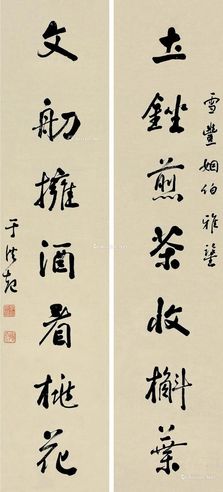 雪豊姻伯雅鑒
土銼煎茶收槲葉
文舫擁酒看桃花
于洪起